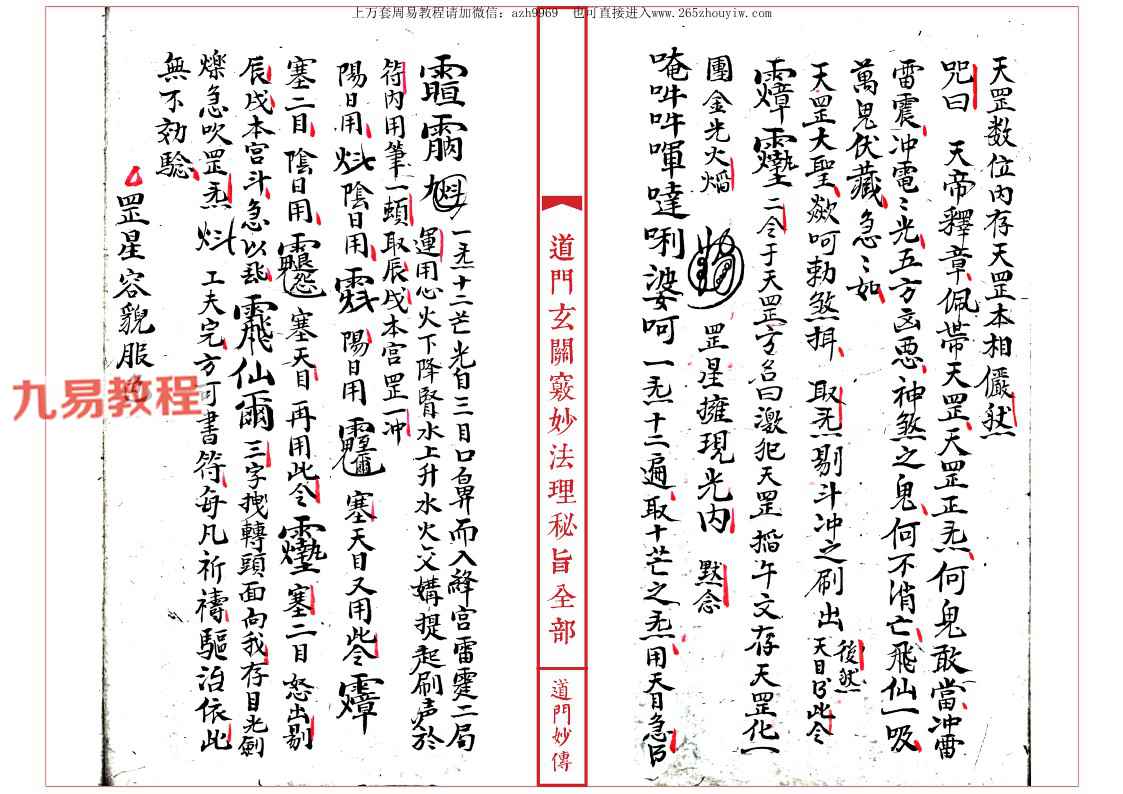 上万套周易教程请加微信：azh9969 也可直接进入www.265zhouyiw.com
天罡数位内存天罡本相儼然
咒曰 天帝釋章佩带天罡天罡正炁何鬼敢當冲雷
雷震冲電〻光五方凶恶神煞之鬼何不消亡飛仙一吸
萬鬼伏藏急〻如
天罡大聖歘呵勅煞揖 取炁剔斗冲之刷出 後然
天目以此令
二令于天罡方名曰激犯天罡搯午文存天罡化一
團金光火熖 罡星擁現光内 默念
唵吽吽喗噠唎婆呵 一炁十二遍取十芒之炁用天目急
道門玄關竅妙法理秘旨全部
道門妙傳
一炁十二芒光自三目口鼻而入絳宫雷霆二局
符内用筆一頓 運用心火下降腎水上升水火交媾提起刷声於
取辰戌本宫罡一冲
陽日用 陰日用 陽日用 塞天目又用此令
塞二目 陰日用 塞天目 再用此令 塞二目 怒出剔
辰戌本宫斗急以 飛仙爾 三字拽轉頭面向我存目光劍
爍急吹罡炁 工夫完方可書符每凡祈禱驅治依此
無不効驗
罡星容貌服色
九易教程